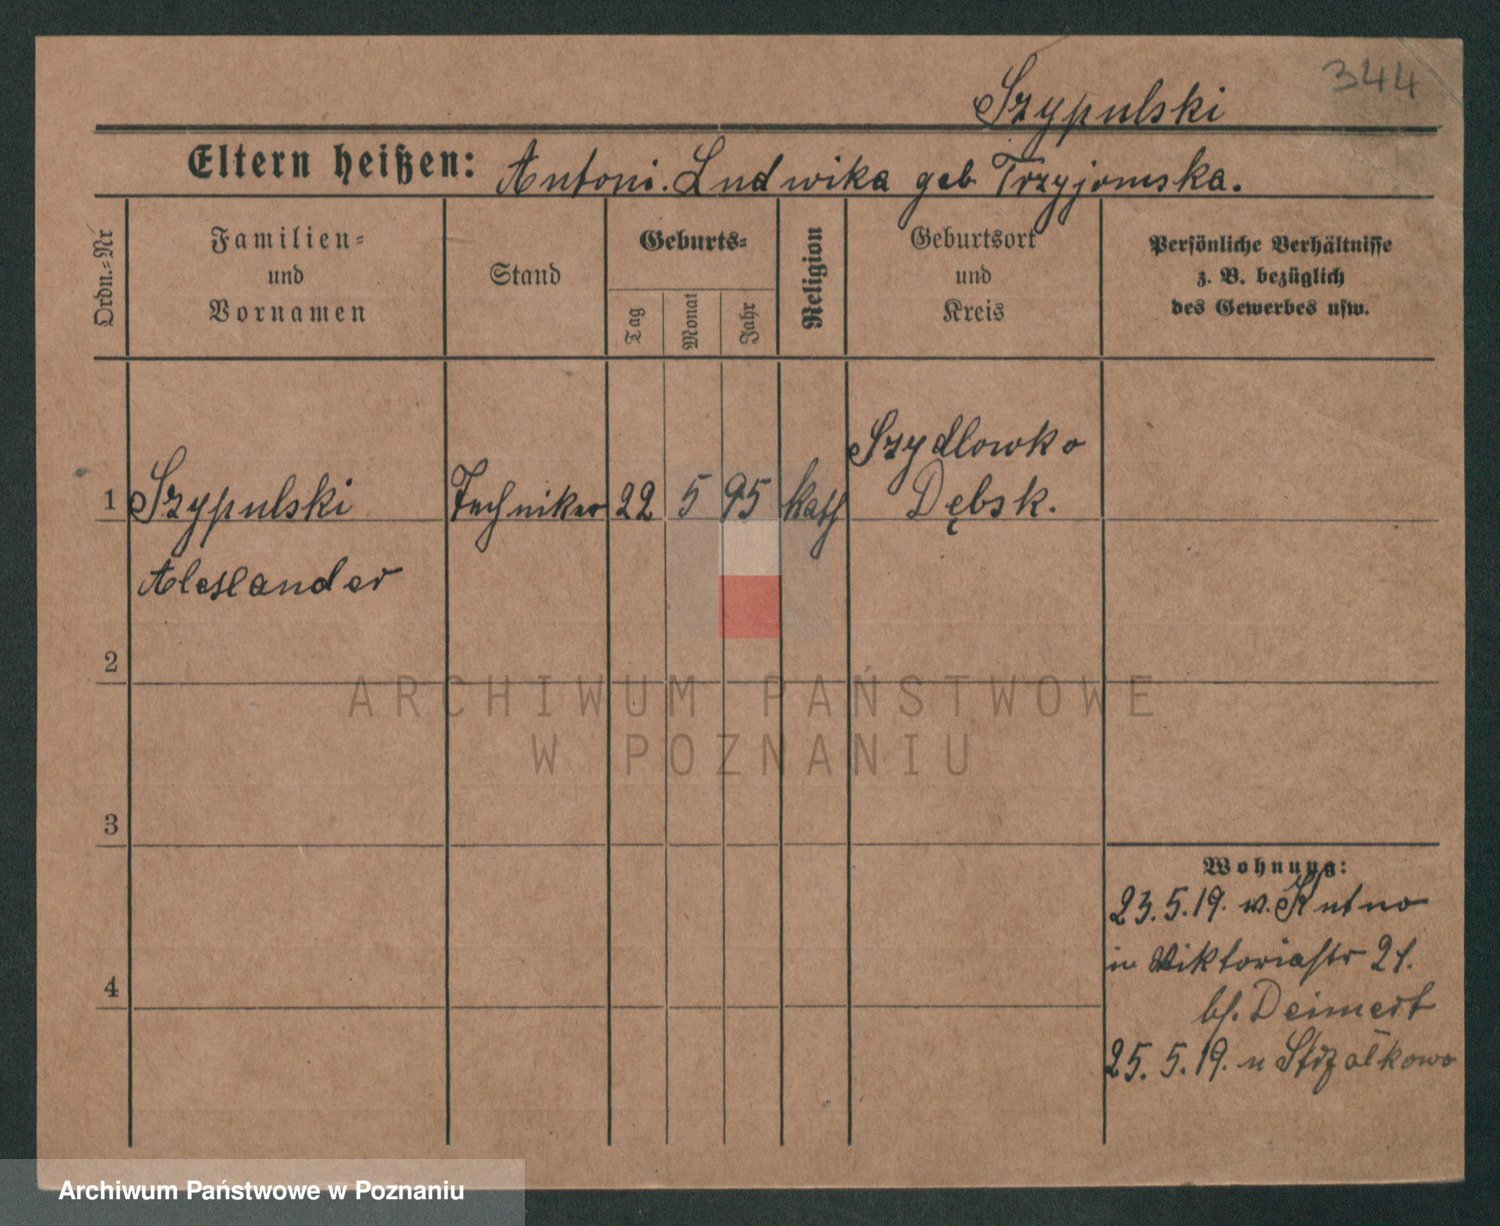 344
Szypulski
Eltern heißen: Antoni. Ludwika geb Trzyjomska.
Ordn.-Nr
Familien-
und
Vornamen
Stand
Geburts-
Tag
Monat
Jahr
Religion
Geburtsort
und
Kreis
Persönliche Verhältnisse
z. B. bezüglich
des Gewerbes usw.
Szydlowko
1 Szypulski Techniker 22 5 95 kath Dębsk.
Alexander
2
3
4
Wohnung:
23.5.19. v. Kutno
in Viktoriastr 21.
bf. Deimert
25.5.19. n Strzalkowo
ARCHIWUM PAŃSTWOWE
W POZNANIU
Archiwum Państwowe w Poznaniu